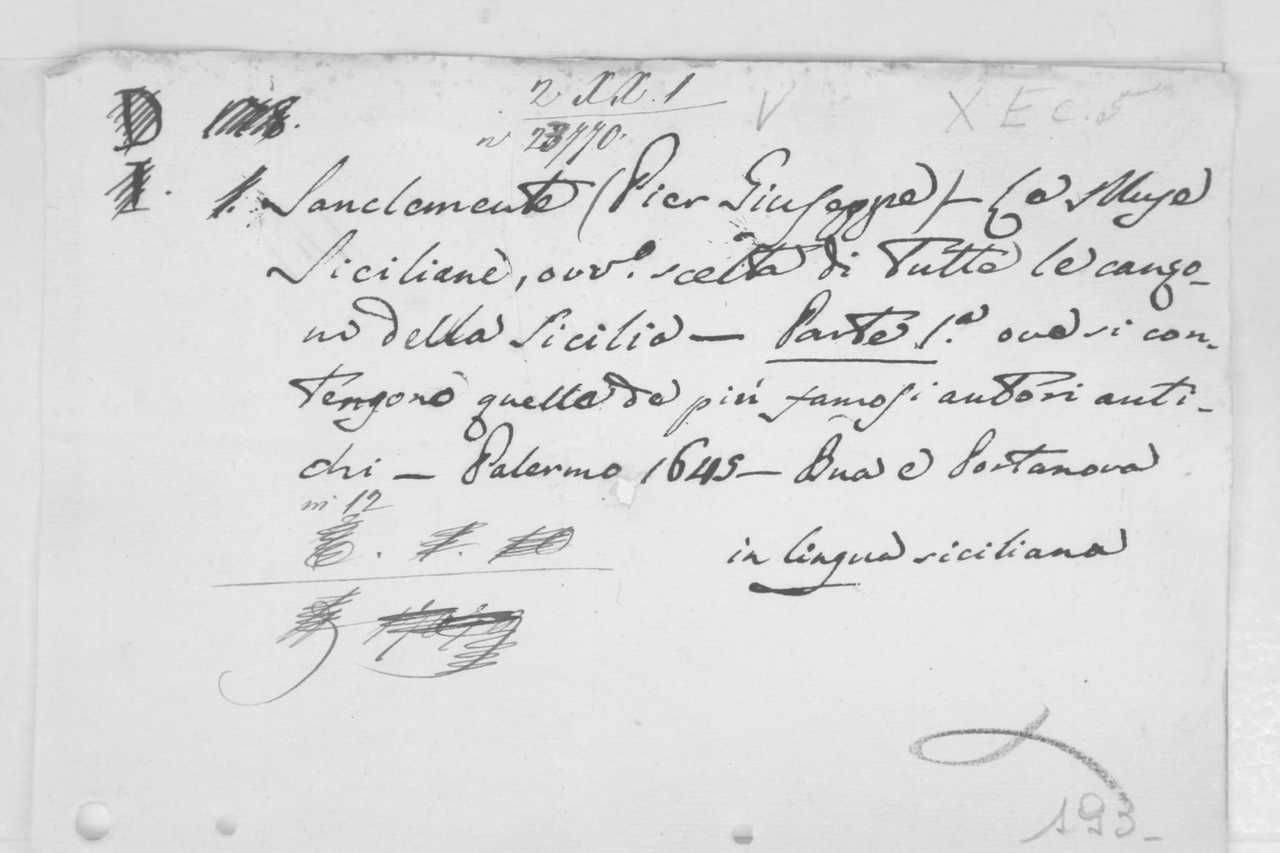 2 XX. 1
V X E c. 5
n 23770.
1. Sanclemente (Pier Giuseppe) - Le Muse
Siciliane, ovv.o scelta di Tutte le canzo-
ni della Sicilia — Parte 1.a ove si con-
tengono quelle de più famosi autori anti-
chi — Palermo 1645 — Bua e Portanova
in 12
in lingua siciliana
193